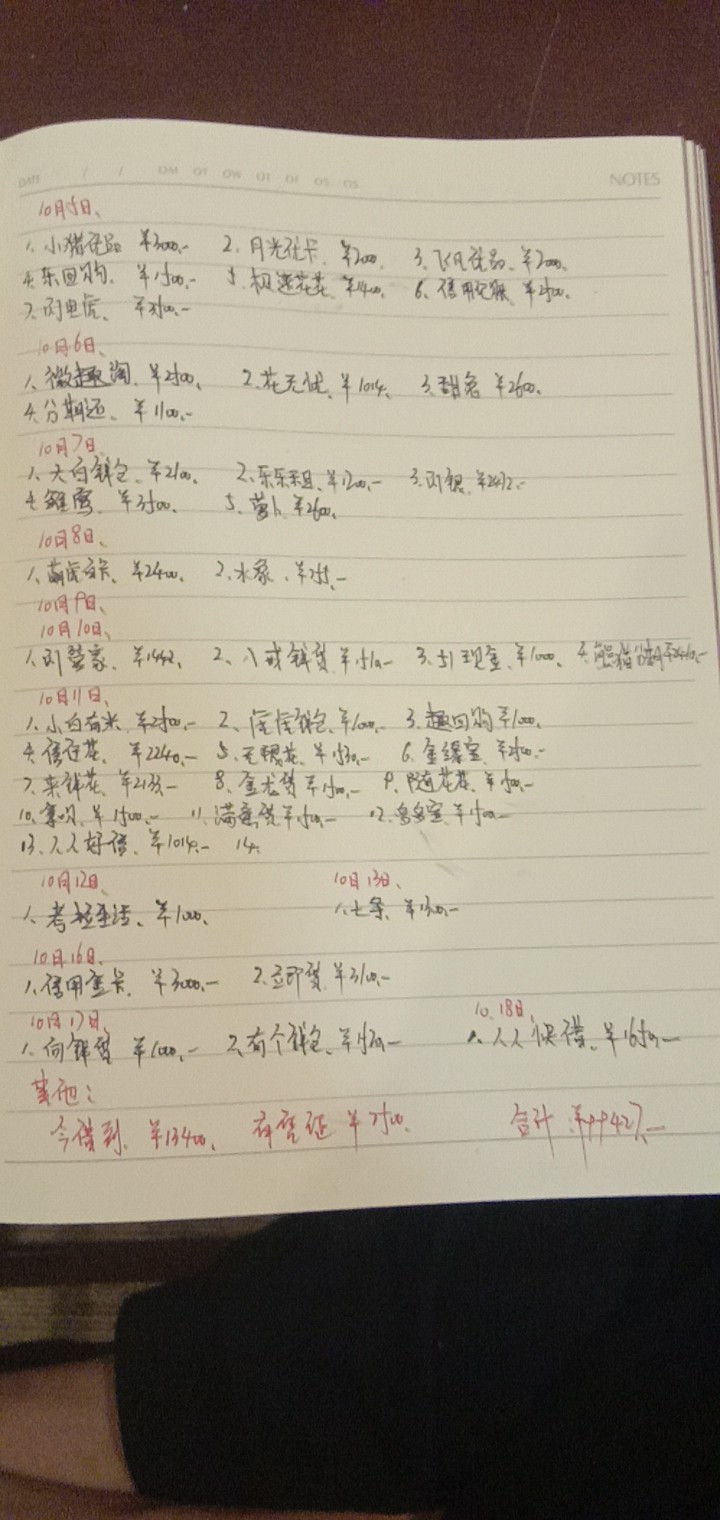 DATE / / OM OT OW OT OF OS OS NOTES
10月5日、
1、小猪优品 ¥3000.- 2、月光 卡、¥2000、 3、飞凡优品、¥2000、
4、东回购、¥1500.- 5、极速花花、¥1400、 6、信用 、¥2500、
7、闪电虎、¥3500.-
10月6日、
1、微趣淘、¥2500、 2、花无忧、¥1014、 3、 ¥2600、
4、分期还、¥1100.-
10月7日、
1、大白钱包、¥2100、 2、乐乐租、¥1200.- 3、闪银、
4、 ¥3500、 5、萝卜、¥2600、
10月8日、
1、萌虎 卡、¥2400、 2、水象、
10月9日、
10月10日、
1、闪 ¥1442、 2、八戒钱贷 3、51现金、¥1000、 4、熊猫
10月11日、
1、小白有米、¥2500.- 2、 钱包、¥1000.- 3、趣回购 ¥1000、
4、 花、¥2240.- 5、 花、¥1530.- 6、金 ¥2500.-
7、来钱花、 8、金龙贷 ¥1500.- 9、 花花、¥1500.-
10、 ¥1500.- 11、满 ¥1500.- 12、 ¥1500.-
13、人人好借、¥1014.- 14、
10月12日、 10月13日、
1、考拉生活、¥1000、 1、七条、¥1300.-
10月16日、
1、信用金卡、¥3000.- 2、立即贷、¥3100.-
10月17日、 10、18日、
1、向钱贷 ¥1000.- 2、有个钱包、 1、人人快借、¥1650.-
其他:
今借到、¥13400、 ¥2500、 合计 ¥99427.-